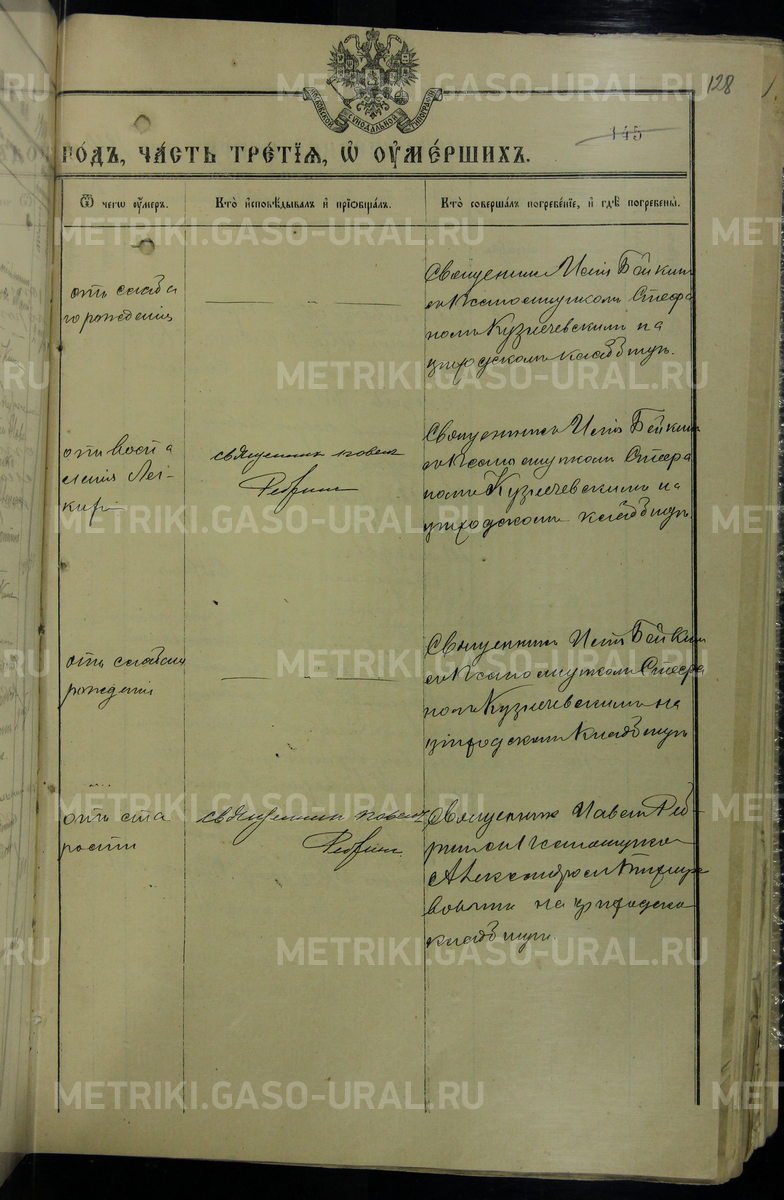 128
145
МОСКОВСКОЙ СѴНОДАЛЬНОЙ ТИПОГРАФІИ
РО́ДЪ, ЧА́СТЬ ТРЕ́ТІѦ, Ѽ ОУ҆МЕ́РШИХЪ.
Ѿ чегѡ̀ ᲂу҆́меръ.
Кто̀ и҆сповѣ́дывалъ и҆ прїѡбща́лъ.
Кто̀ соверша́лъ погребе́нїе, и҆ гдѣ̀ погребены̀.
отъ слаба
го рожденія
Священник Бойкин
съ Псаломщиком Стефа
номъ Кузнечевскимъ на
приходскомъ кладбищѣ.
отъ воспа
ленія Лег-
кихъ
священник Павел
Ребрин
Священникъ Бойкин
съ Псаломщиком Стефа
номъ Кузнечевскимъ на
приходскомъ кладбищѣ.
отъ слабаго
рожденія
Священникъ Бойкин
съ Псаломщиком Стефа
номъ Кузнечевскимъ на
приходскомъ кладбищѣ
отъ ста
рости
священник Павел
Ребрин
Священник Павел Реб-
рин съ Псаломщико
Александром
на приходско
кладбищѣ.
METRIKI.GASO-URAL.RU